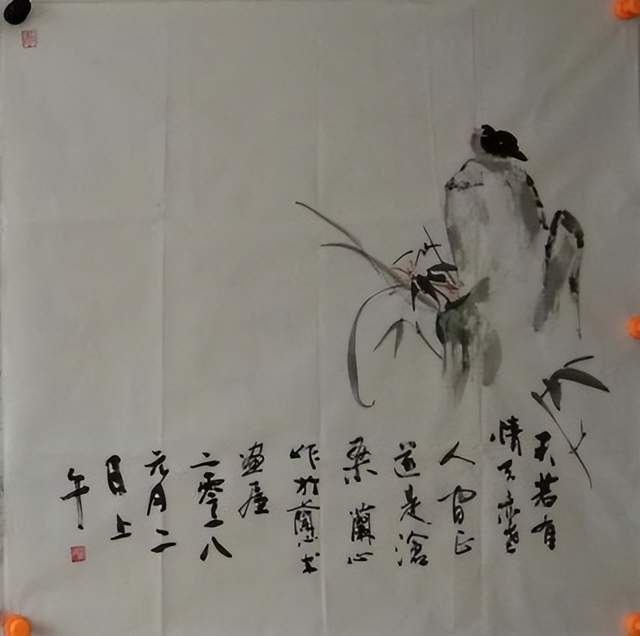 天若有
情天亦老
人间正
道是滄
桑 蘭心
作於蘭心书
畫屋
二零一八
元月二
日上
午